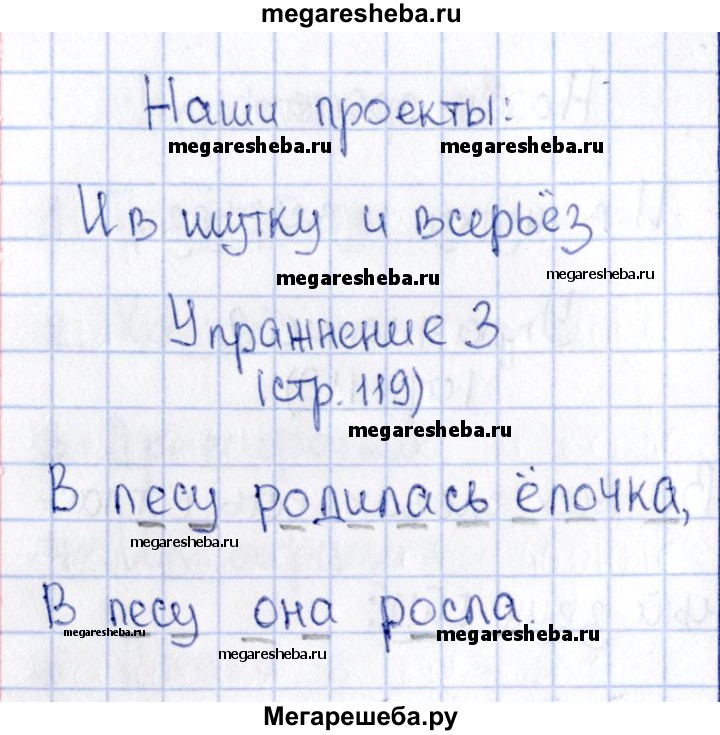 megaresheba.ru
Наши проекты:
megaresheba.ru megaresheba.ru
И в шутку и всерьёз
megaresheba.ru megaresheba.ru
Упражнение 3
(стр. 119)
megaresheba.ru
В лесу родилась ёлочка,
megaresheba.ru
В лесу она росла.
megaresheba.ru megaresheba.ru
megaresheba.ru
Мегарешеба.ру